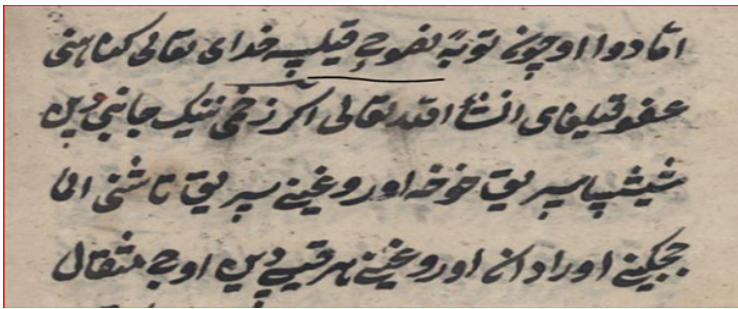 اما دوا اوچون توبهٔ نصوحی قیلیب خدای تعالی کناهنی
عفو قیلغای انشأ الله تعالی اکر زخمی نینک جانبی دین
شیشیبا سریق خوخه اوروغینی سریق تاشنی انی
اوراد انه اوروغینی هر قیسی دین اوچ مثقال